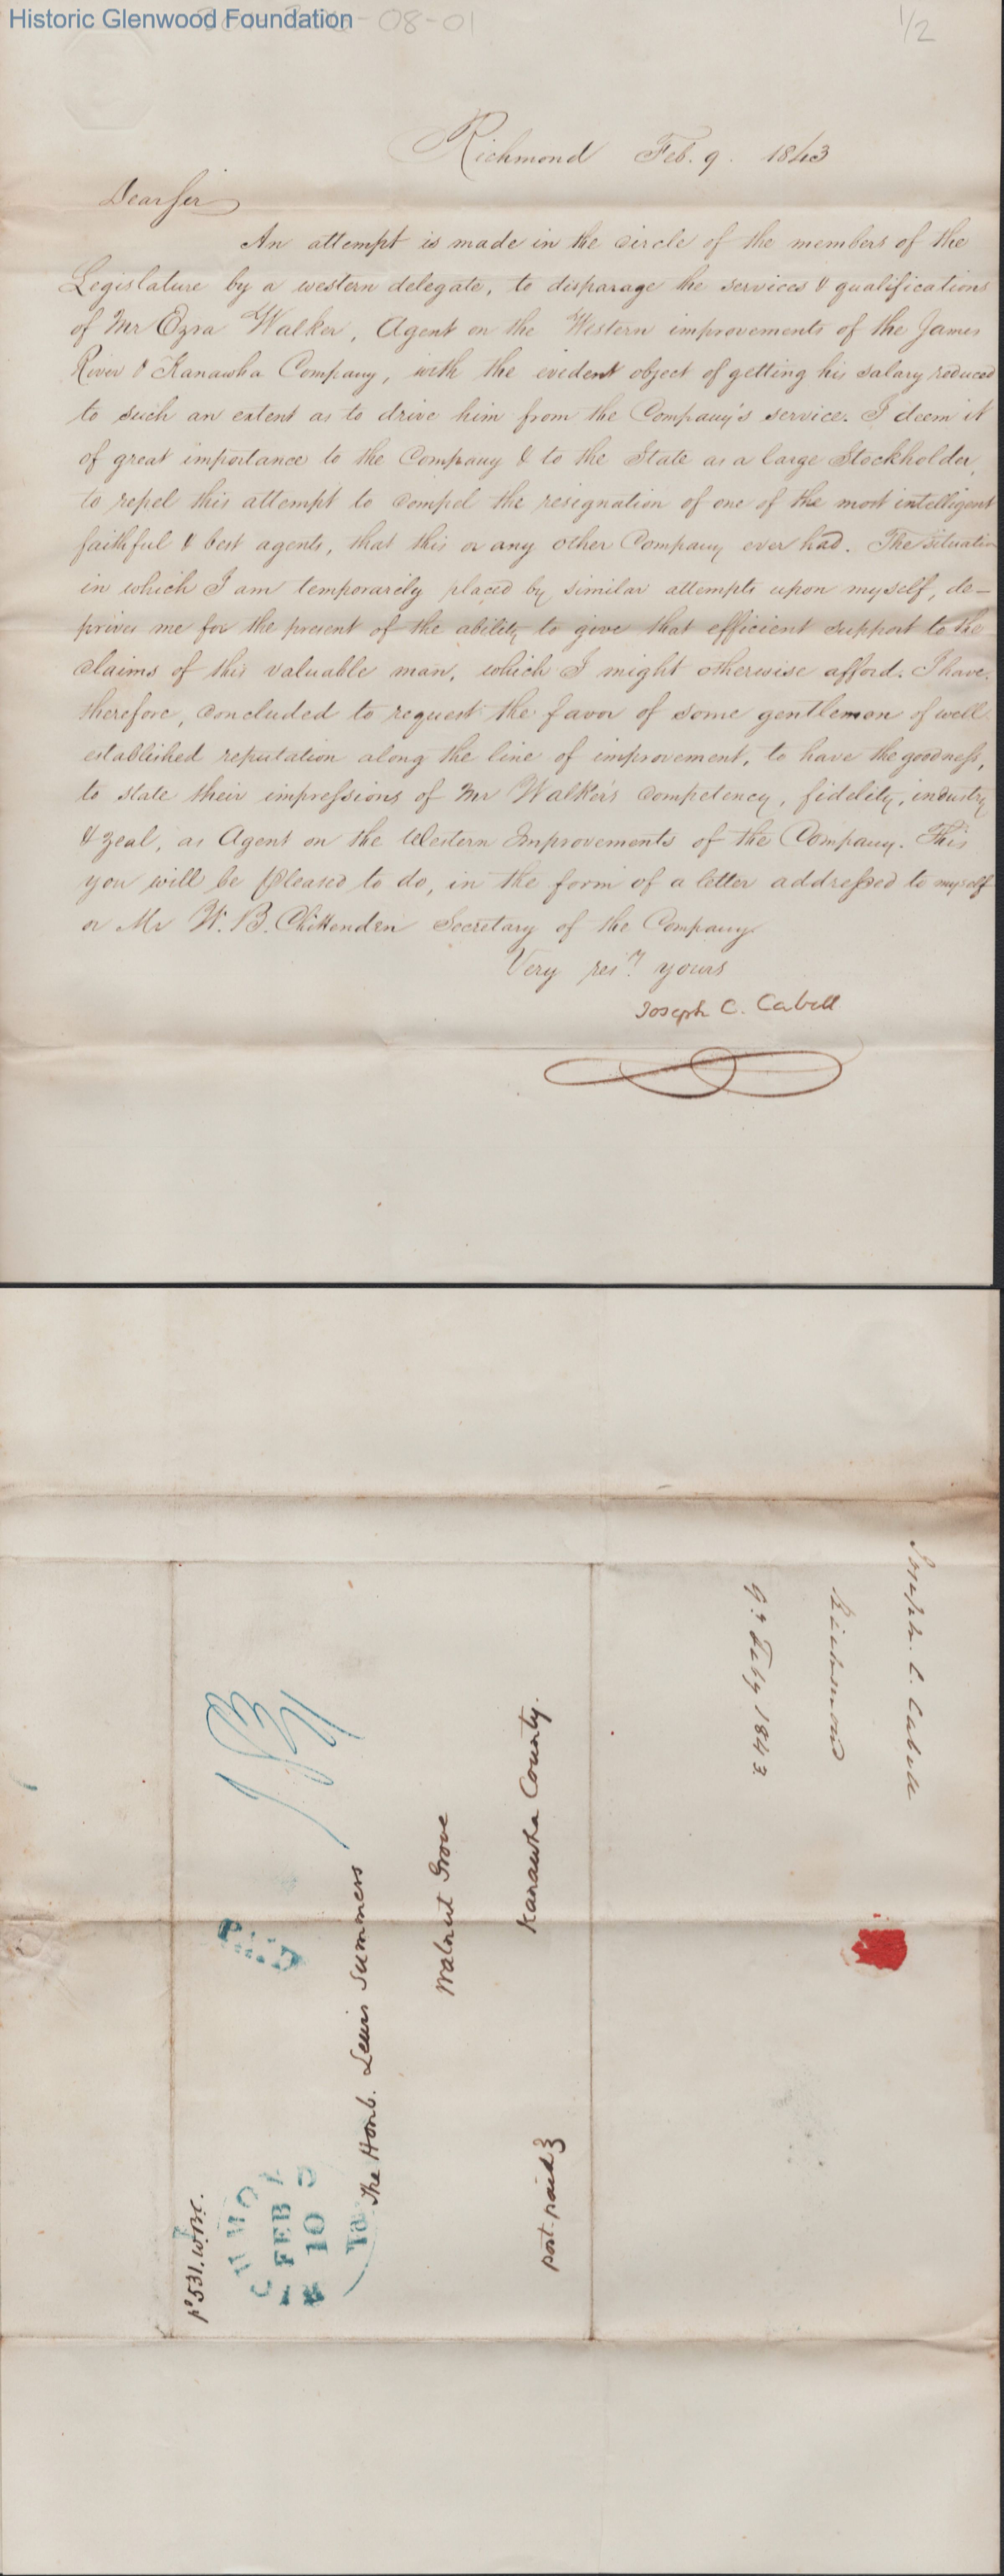 Historic Glenwood Foundation
08-01
1/2
Richmond Feb. 9. 1843
Dear Sir
An attempt is made in the circle of the members of the
Legislature by a western delegate, to disparage the services & qualifications
of Mr Ezra Walker, Agent on the Western improvements of the James
River & Kanawha Company, with the evident object of getting his salary reduced
to such an extent as to drive him from the Company's service. I deem it
of great importance to the Company & to the State as a large Stockholder,
to repel this attempt to compel the resignation of one of the most intelligent
faithful & best agents, that this or any other Company ever had. The situation
in which I am temporarily placed by similar attempts upon myself, de-
prives me for the present of the ability to give that efficient support to the
claims of this valuable man, which I might otherwise afford. I have,
therefore, concluded to request the favor of some gentlemen of well
established reputation along the line of improvement, to have the goodness,
to state their impressions of Mr Walker's competency, fidelity, industry
& zeal, as Agent on the Western Improvements of the Company. This
you will be pleased to do, in the form of a letter addressed to myself
or Mr W. B. Chittenden Secretary of the Company.
Very res.y yours
Joseph C. Cabell
Joseph. C. Cabell
Richmond
9th Feby 1843
PAID
The Honb. Lewis Summers
Walnut Grove
Kanawha County.
post-paid
po 531. W.B.C.
CHMO
FEB
10
Va